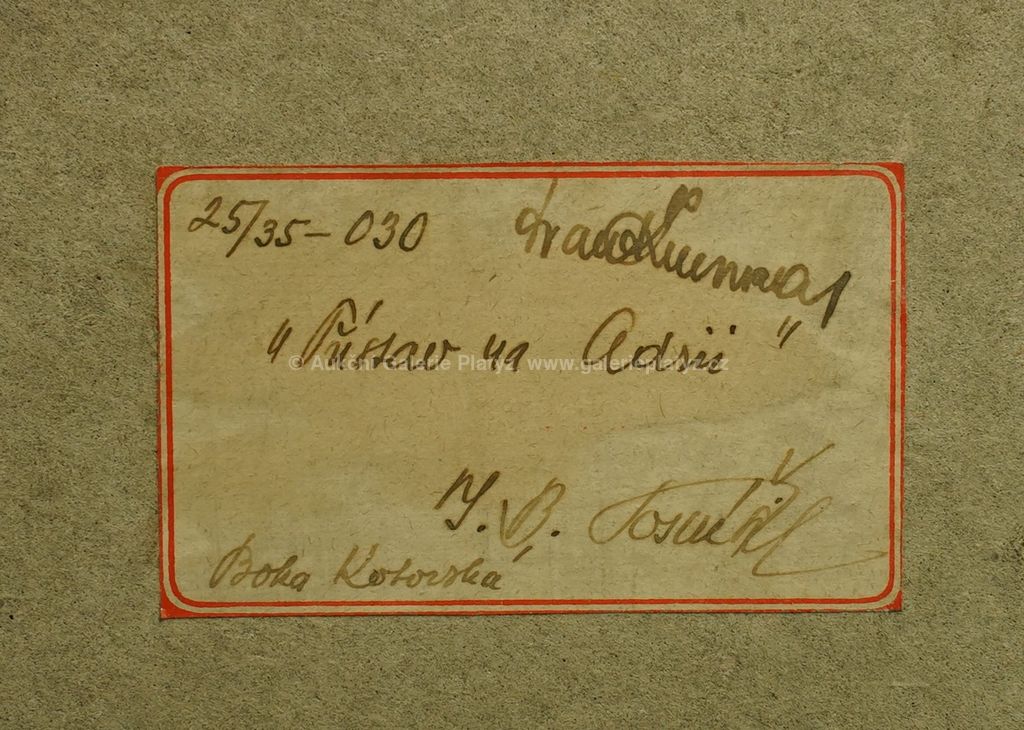 25/35 – 030
"Přístav na Adrii"
© Aukční Galerie Platýz www.galerieplatyz.cz
J. B.
Boka Kotorska